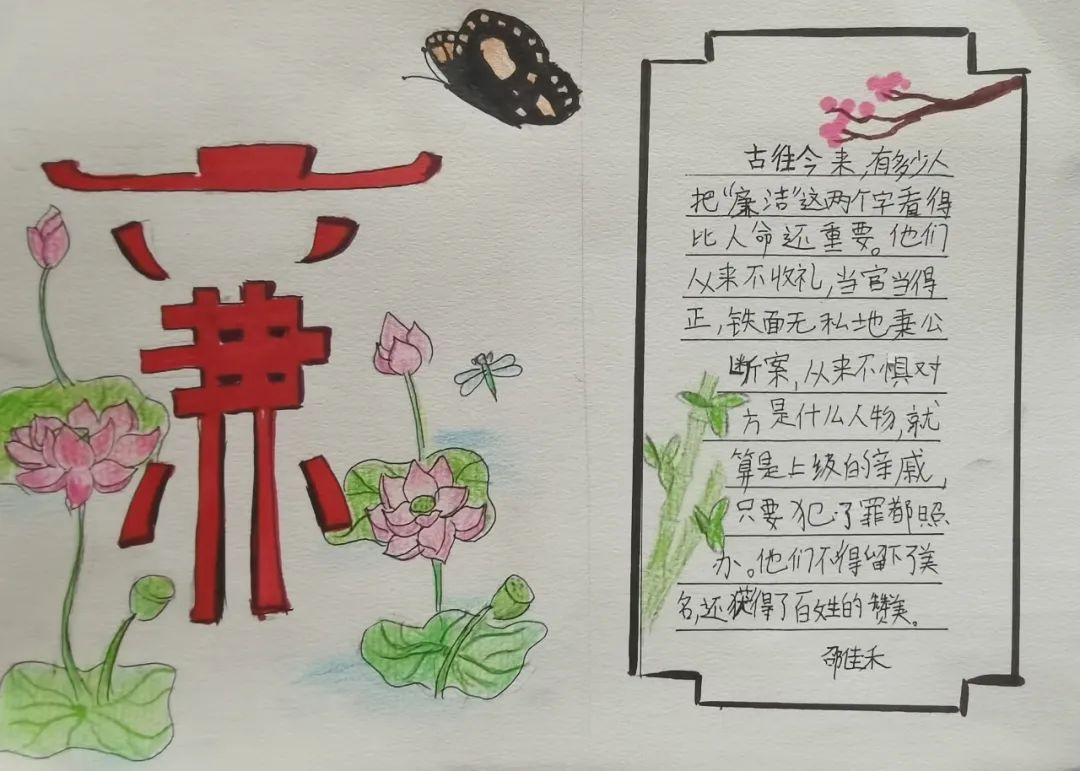 廉
古往今来,有多少人
把“廉洁”这两个字看得
比人命还重要。他们
从来不收礼,当官当得
正,铁面无私地秉公
断案,从来不惧对
方是什么人物,就
算是上级的亲戚,
只要犯了罪都照
办。他们不得留下了美
名,还获得了百姓的赞美。
邵佳禾